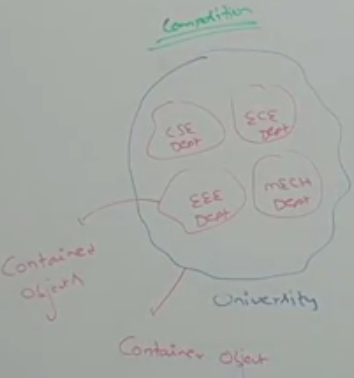 Composition
CSE
Dept
ECE
Dept
EEE
Dept
MECH
Dept
Contained
Object
University
Container Object